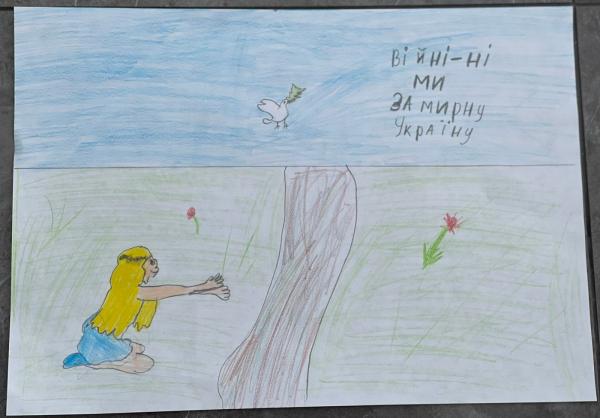 Війні-ні
ми
за мирну
Україну